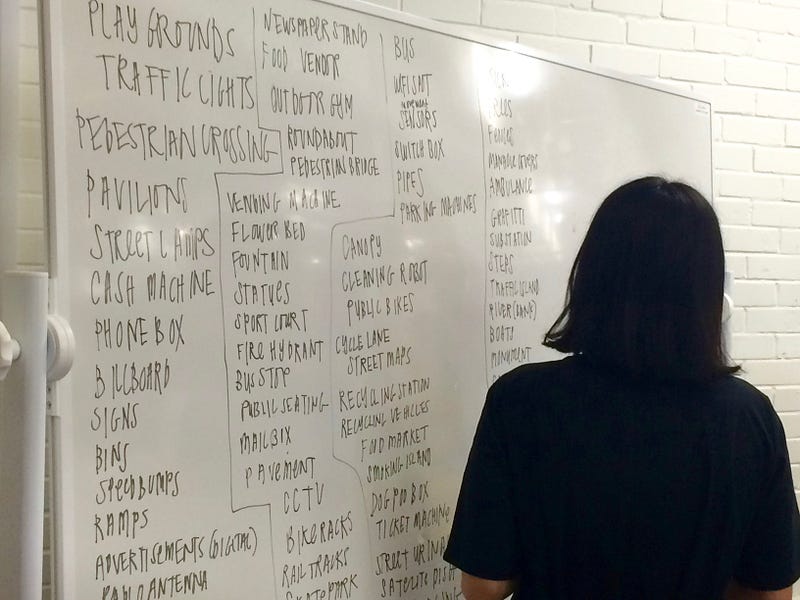 PLAYGROUNDS
TRAFFIC LIGHTS
PEDESTRIAN CROSSING
PAVILIONS
STREET LAMPS
CASH MACHINE
PHONE BOX
BILLBOARD
SIGNS
BINS
SPEEDBUMPS
RAMPS
ADVERTISEMENTS (DIGITAL)
RADIO ANTENNA
NEWSPAPER STAND
FOOD VENDOR
OUTDOOR GYM
ROUNDABOUT
PEDESTRIAN BRIDGE
VENDING MACHINE
FLOWER BED
FOUNTAIN
STATUES
SPORT COURT
FIRE HYDRANT
BUS STOP
PUBLIC SEATING
MAILBIX
PAVEMENT
CCTV
BIKE RACKS
RAIL TRACKS
SKATEPARK
BUS
SENSORS
SWITCH BOX
PIPES
PARKING MACHINES
CANOPY
CLEANING ROBOT
PUBLIC BIKES
CYCLE LANE
STREET MAPS
RECYCLING STATION
RECYCLING VEHICLES
FOOD MARKET
SMOKING ISLAND
DOG POO BOX
TICKET MACHINE
STREET URINA
SATELITE DISH
MANHOLE COVERS
AMBULANCE
GRAFITTI
SUBSTATION
STEPS
TRAFFIC ISLAND
RIVER (BANK)
BOATS
MONUMENT